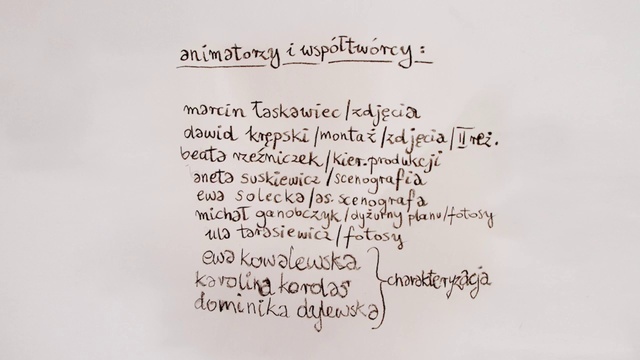 animatorzy i współtwórcy:
marcin łaskawiec/zdjęcia
dawid krępski/montaż/zdjęcia/II reż.
beata rzeźniczek/kier. produkcji
aneta suskiewicz/scenografia
ewa solecka/as. scenografa
michał ganobczyk/dyżurny planu/fotosy
ula tarasiewicz/fotosy
ewa kowalewska
karolina kordas } charakteryzacja
dominika dajewska